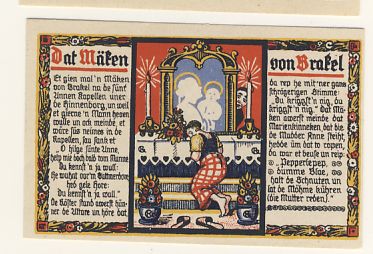 Dat Mäken
Et gien mal 'n Mäken
von Brakel na de sünt
Annen Kapellen uner
de Hinnenborg, un weil
et gierne 'n Mann hezen
wulle un ock meinde, et
wäre süs neimes in de
Kapellen, sau sank et
O hilge sünte Anne,
help mie doch bald tom Manne.
Du kennst 'n ja wull:
He wuhnt var'm Suttmerdore
hed gele Hore:
Du kennst 'n ja wull."
de Köster stand awerst hün-
ner de Altare un höre dat
von Brakel
da rep he mit'ner gans
schrögerigen Stimme
„Du kriggst'n nig, du
kriggst'n nig." Dat Mä-
ken awerst meinde dat
Marienkinneken dat bie
de Mudder Anne steiht,
hedde üm dat to ropen,
da wor et beuse un reip:
„Pepperlepep,
dumme Blae,
halt de Schnuten un
lat de Möhme kühren
(die Mutter reden)."